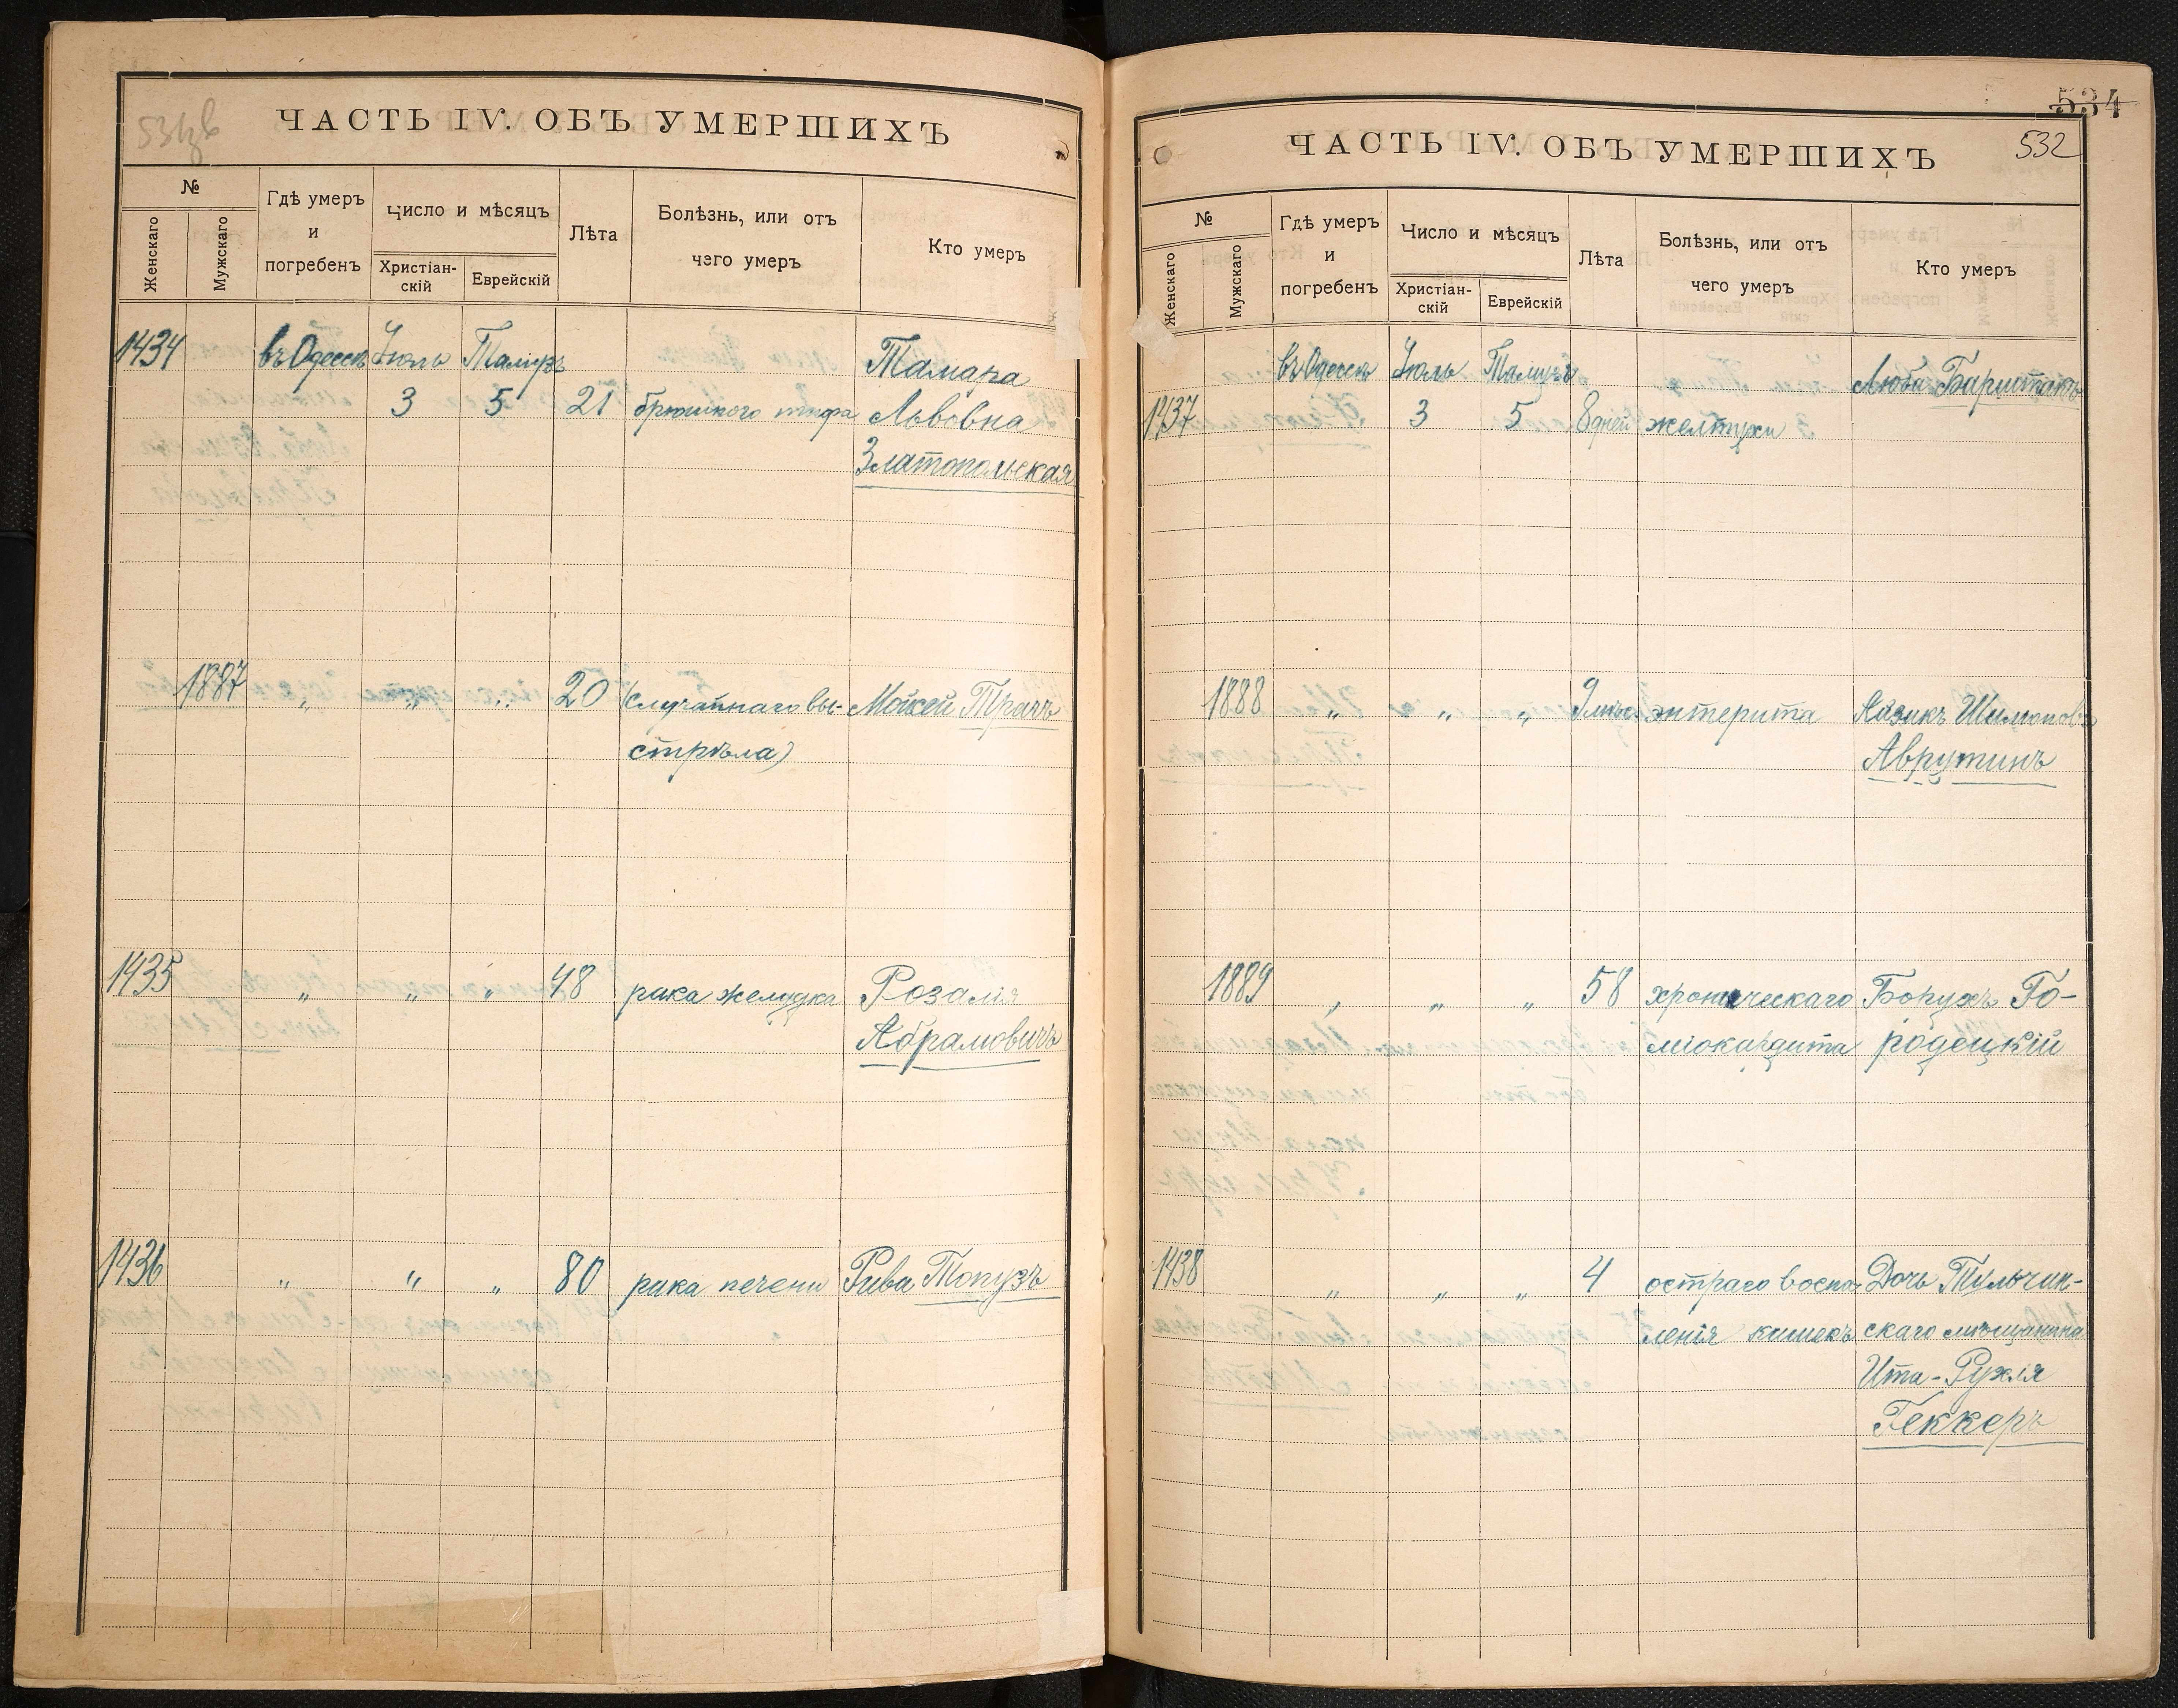 531об
ЧАСТЬ IV. ОБЪ УМЕРШИХЪ
№
Женскаго
Мужскаго
Гдѣ умеръ
и
погребенъ
Число и мѣсяцъ
Христіан-
скій
Еврейскій
Лѣта
Болѣзнь, или отъ
чего умеръ
Кто умеръ
1434 въ Одессѣ Іюль Тамузъ Тамара
3 5 21 брюшного тифа Львовна
Златопольская
1887 „ „ „ 20 (случайнаго вы- Мойсей Трачъ
стрѣла)
1435 „ „ „ 48 рака желудка Розалія
Абрамовичъ
1436 „ „ „ 80 рака печени Рива Топузъ
534
532
ЧАСТЬ IV. ОБЪ УМЕРШИХЪ
№
Женскаго
Мужскаго
Гдѣ умеръ
и
погребенъ
Число и мѣсяцъ
Христіан-
скій
Еврейскій
Лѣта
Болѣзнь, или отъ
чего умеръ
Кто умеръ
въ Одессѣ Іюль Тамузъ Люба
1437 3 5 8 дней желтухи
1888 „ „ „ 9 мѣс. энтерита Айзикъ Шимоновъ
Аврутинъ
1889 „ „ „ 58 хроническаго Борухъ Го-
міокардита родецкій
1438 „ „ „ 4 остраго воспа- Дочь Тульчин-
ленія кишекъ скаго мѣщанина
Ита-Рухля
Геккеръ